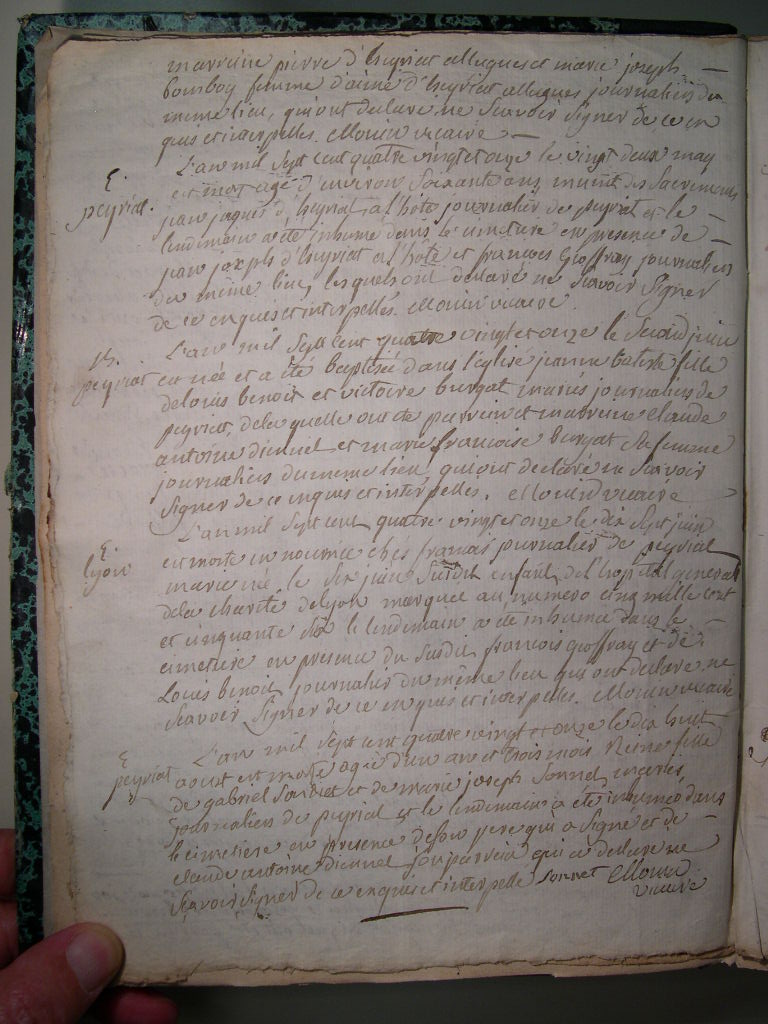 marraine pierre d'heyriat allegues et marie joseph
bombog femme d'aimé d'heyriat allegues journaliers du
meme lieu, qui ont declaré ne scavoir signer de ce en
quis et interpelles. Monin vicaire
L'an mil sept cent quatre vingt et onze le vingt deux may
E. peyriat.
est mort agé d'environ soixante ans muni des sacremens
jean jaques d'heyriat a l'hote journalier de peyriat et le
lendemain a été inhumé dans le cimetiere en presence de
jean joseph d'heyriat a l'hote et francois Geoffray journaliers
du même lieu, lesquels ont declaré ne scavoir signer
de ce enquis et interpellés. Monin vicaire
L'an mil sept cent quatre vingt et onze le second juin
B. peyriat
est née et a été baptisée dans l'église jeanne batiste fille
de louis benoit et victoire burgat mariés journaliers de
peyriat, de la quelle ont été parrein et marreine claude
antoine dionnel et marie francoise burgat sa femme
journaliers du meme lieu qui ont declaré ne scavoir
signer de ce enquis et interpelles. Monin vicaire
L'an mil sept cent quatre vingt et onze le dix sept juin
E. lyon
est morte en nourrice chés francois journalier de peyriat
marie née le six juin susdit enfant de l'hopital general
de la charité de lyon marquée au numero cinq mille cent
et cinquante six le lendemain a été inhumée dans le
cimetiere en presence du susdit francois geoffray et de
Louis benoit journalier du même lieu qui ont declaré ne
scavoir signer de ce enquis et interpelles. Monin vicaire
L'an mil sept cent quatre vingt et onze le dix huit
E. peyriat
aoust est morte agée d'un an et trois mois Reine fille
de gabriel sonnet et de marie joseph sonnet
journaliers de peyriat et le lendemain a été inhumée dans
le cimetiere en presence de son pere qui a signé et de
claude antoine dionnel son parrein qui a declaré ne
scavoir signer de ce enquis et interpelle sonnet Monin
vicaire